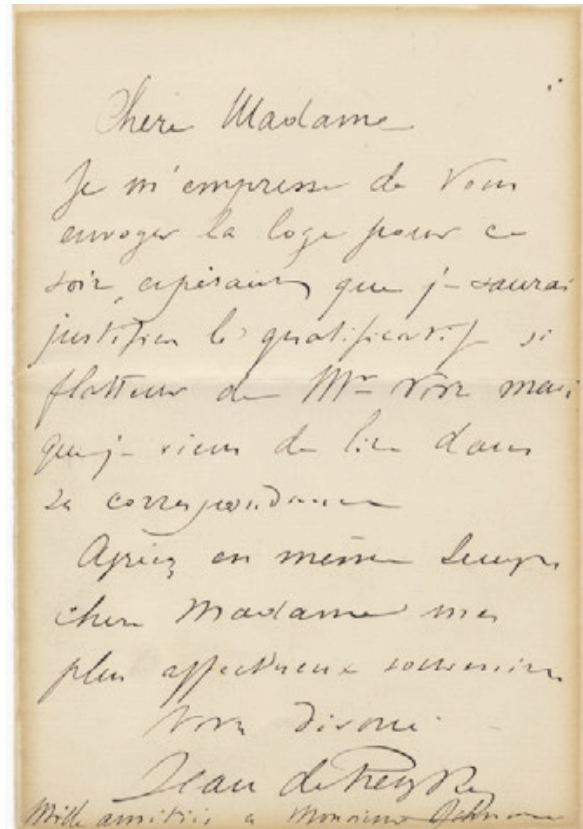 Chère Madame
Je m'empresse de vous
envoyer la loge pour ce
soir, espérant que je saurai
justifier le qualificatif si
flatteur de Mr votre mari
que je viens de lire dans
sa correspondance
Agréez en même temps
chère Madame mes
plus affectueux souvenirs
Votre dévoué
Jean de Reszke
Mille amitiés à Monsieur